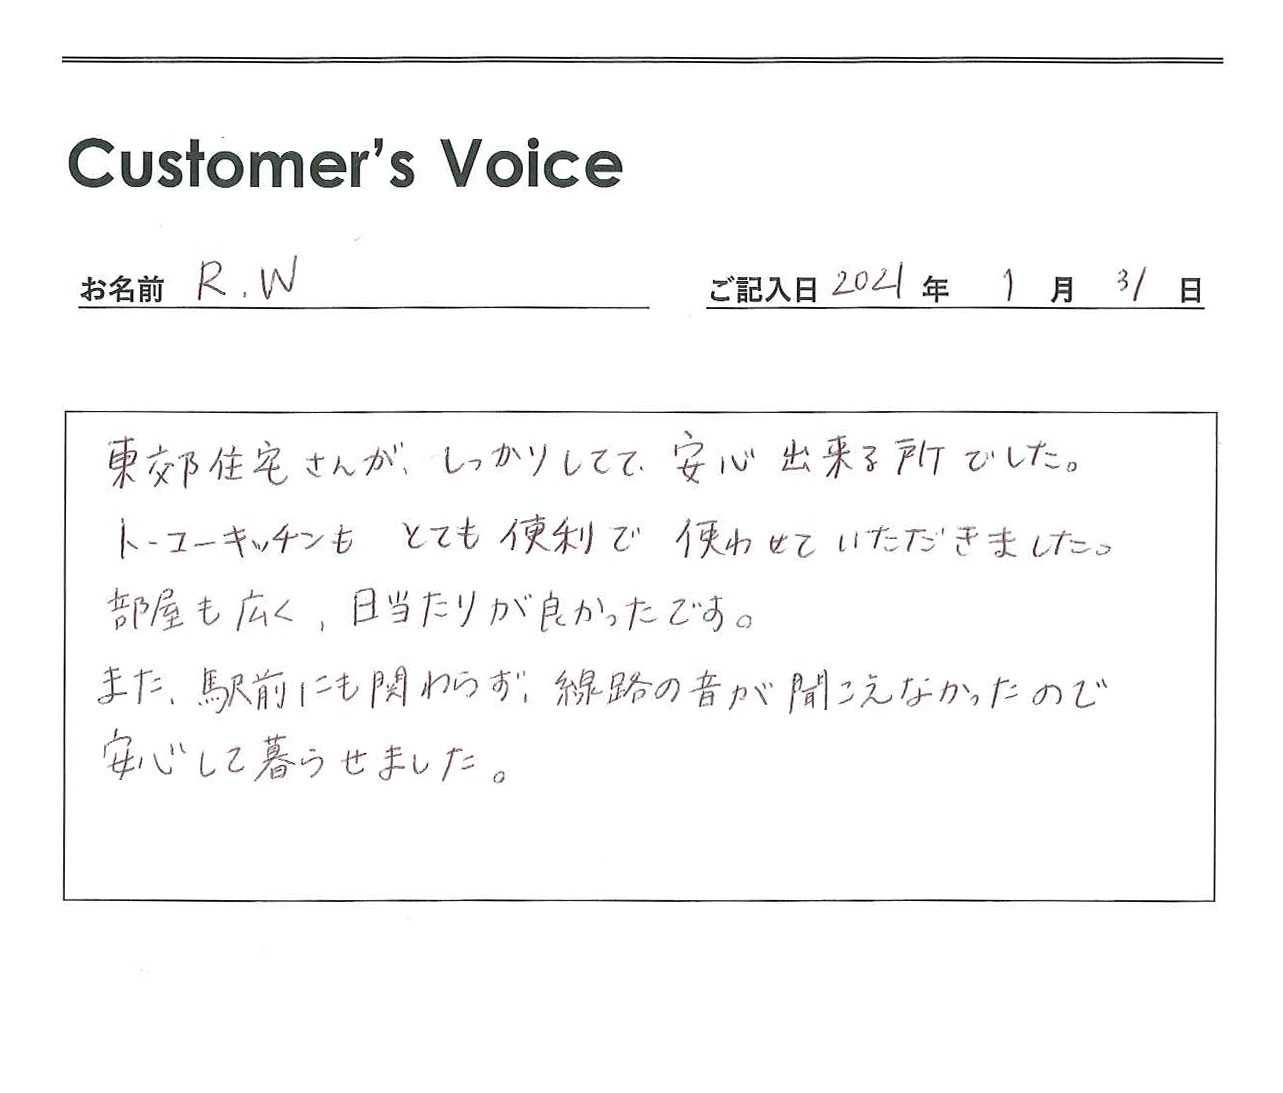 Customer's Voice
お名前 R.W ご記入日 2021 年 1 月 31 日
東郊住宅さんが、しっかりしてて、安心 出来る所でした。
トーコーキッチンも とても便利で 使わせていただきました。
部屋も広く、日当たりが良かったです。
また、駅前にも関わらず、線路の音が聞こえなかったので
安心して暮らせました。